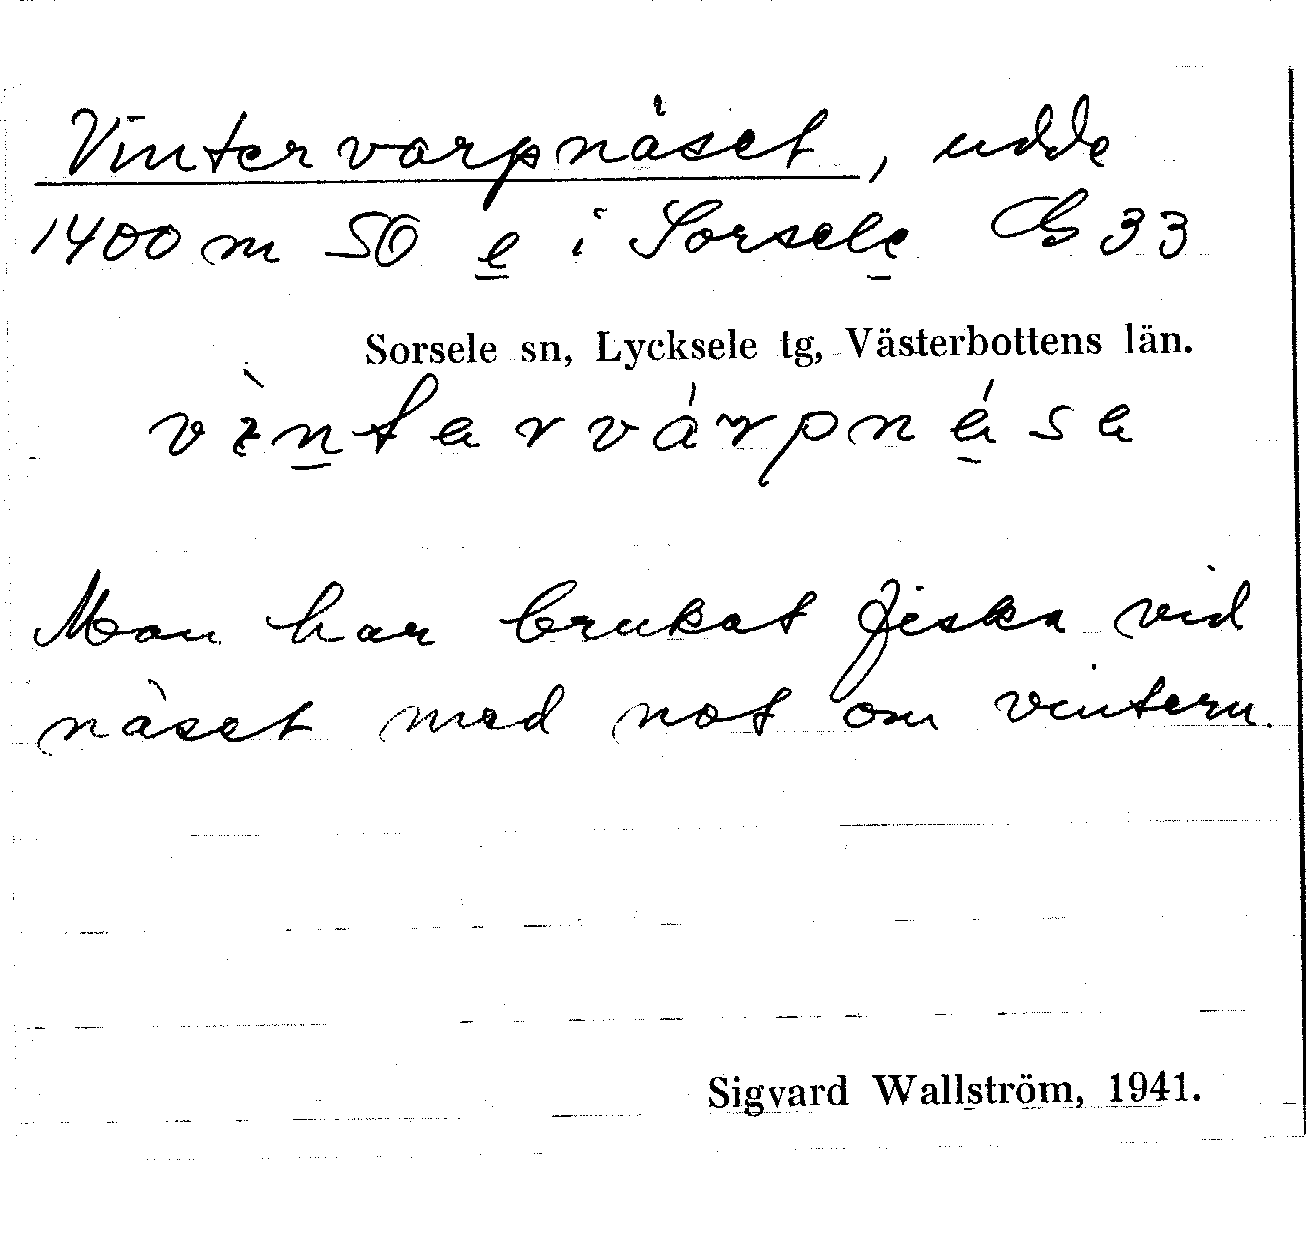 Vintervarpnäset, udde
1400 m SO e i Sorsele G 33
Sorsele sn, Lycksele tg, Västerbottens län.
vìntervárpnésa
Man har brukat fiska vid
näset med not om vintern.
Sigvard Wallström, 1941.